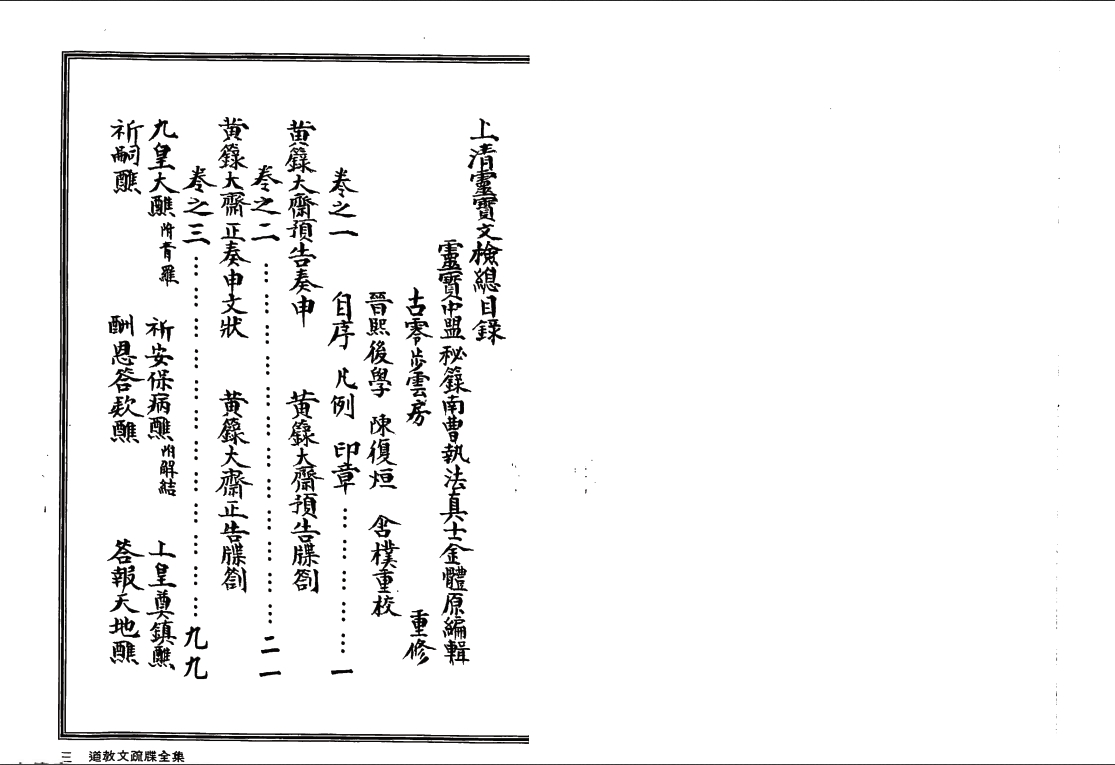 上清靈寳文檢總目錄
靈寳中盟秘籙南曹執法真士金體原編輯
古零步雲房 重修
晉熙後學 陳復烜 含樸重校
卷之一 自序 凡例 印章………………一
黄籙大齋預告奏申 黄籙大齋預告牒劄
卷之二………………二一
黄籙大齋正奏申文狀 黄籙大齋正告牒劄
卷之三………………九九
九皇大醮附青羅 祈安保病醮附解結 上皇奠鎮醮
祈嗣醮 酬恩答欵醮 答報天地醮
三 道教文疏牒全集